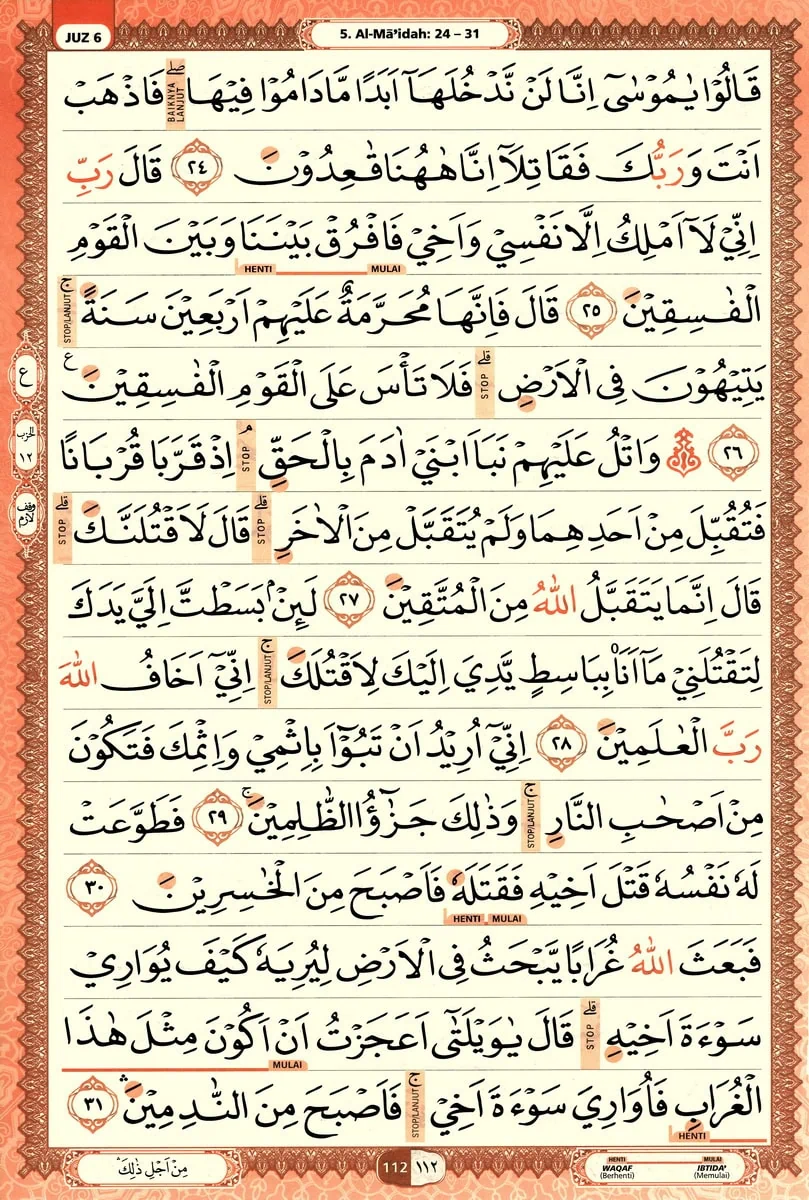 JUZ 6
5. Al-Mā’idah: 24 – 31
قَالُوْا يٰمُوْسٰٓى اِنَّا لَنْ نَّدْخُلَهَآ اَبَدًا مَّا دَامُوْا فِيْهَا ۖ BAIKNYA LANJUT فَاذْهَبْ
اَنْتَ وَرَبُّكَ فَقَاتِلَآ اِنَّا هٰهُنَا قٰعِدُوْنَ ٢٤ قَالَ رَبِّ
اِنِّيْ لَآ اَمْلِكُ اِلَّا نَفْسِيْ وَاَخِيْ فَافْرُقْ بَيْنَنَا وَبَيْنَ الْقَوْمِ
HENTI MULAI
الْفٰسِقِيْنَ ٢٥ قَالَ فَاِنَّهَا مُحَرَّمَةٌ عَلَيْهِمْ اَرْبَعِيْنَ سَنَةً ۚ STOP/LANJUT
يَتِيْهُوْنَ فِى الْاَرْضِ ۗ STOP فَلَا تَأْسَ عَلَى الْقَوْمِ الْفٰسِقِيْنَ ࣖ
ع
٢٦ ۞ وَاتْلُ عَلَيْهِمْ نَبَاَ ابْنَيْ اٰدَمَ بِالْحَقِّ ۘ STOP اِذْ قَرَّبَا قُرْبَانًا
الحزب ١٢
فَتُقُبِّلَ مِنْ اَحَدِهِمَا وَلَمْ يُتَقَبَّلْ مِنَ الْاٰخَرِ ۗ STOP قَالَ لَاَقْتُلَنَّكَ ۗ STOP
وقف لازم
قَالَ اِنَّمَا يَتَقَبَّلُ اللّٰهُ مِنَ الْمُتَّقِيْنَ ٢٧ لَئِنْۢ بَسَطْتَّ اِلَيَّ يَدَكَ
لِتَقْتُلَنِيْ مَآ اَنَا۠ بِبَاسِطٍ يَّدِيَ اِلَيْكَ لِاَقْتُلَكَ ۚ STOP/LANJUT اِنِّيْٓ اَخَافُ اللّٰهَ
رَبَّ الْعٰلَمِيْنَ ٢٨ اِنِّيْٓ اُرِيْدُ اَنْ تَبُوْۤاَ بِاِثْمِيْ وَاِثْمِكَ فَتَكُوْنَ
مِنْ اَصْحٰبِ النَّارِ ۚ STOP/LANJUT وَذٰلِكَ جَزٰۤؤُا الظّٰلِمِيْنَ ۚ ٢٩ فَطَوَّعَتْ
لَهٗ نَفْسُهٗ قَتْلَ اَخِيْهِ فَقَتَلَهٗ فَاَصْبَحَ مِنَ الْخٰسِرِيْنَ ٣٠
HENTI MULAI
فَبَعَثَ اللّٰهُ غُرَابًا يَّبْحَثُ فِى الْاَرْضِ لِيُرِيَهٗ كَيْفَ يُوَارِيْ
سَوْءَةَ اَخِيْهِ ۗ STOP قَالَ يٰوَيْلَتٰٓى اَعَجَزْتُ اَنْ اَكُوْنَ مِثْلَ هٰذَا
MULAI
الْغُرَابِ فَاُوَارِيَ سَوْءَةَ اَخِيْ ۚ STOP/LANJUT فَاَصْبَحَ مِنَ النّٰدِمِيْنَ ۛ ٣١
HENTI
مِنْ اَجْلِ ذٰلِكَ ۛ
112 ١١٢
HENTI WAQAF (Berhenti)
MULAI IBTIDA' (Memulai)